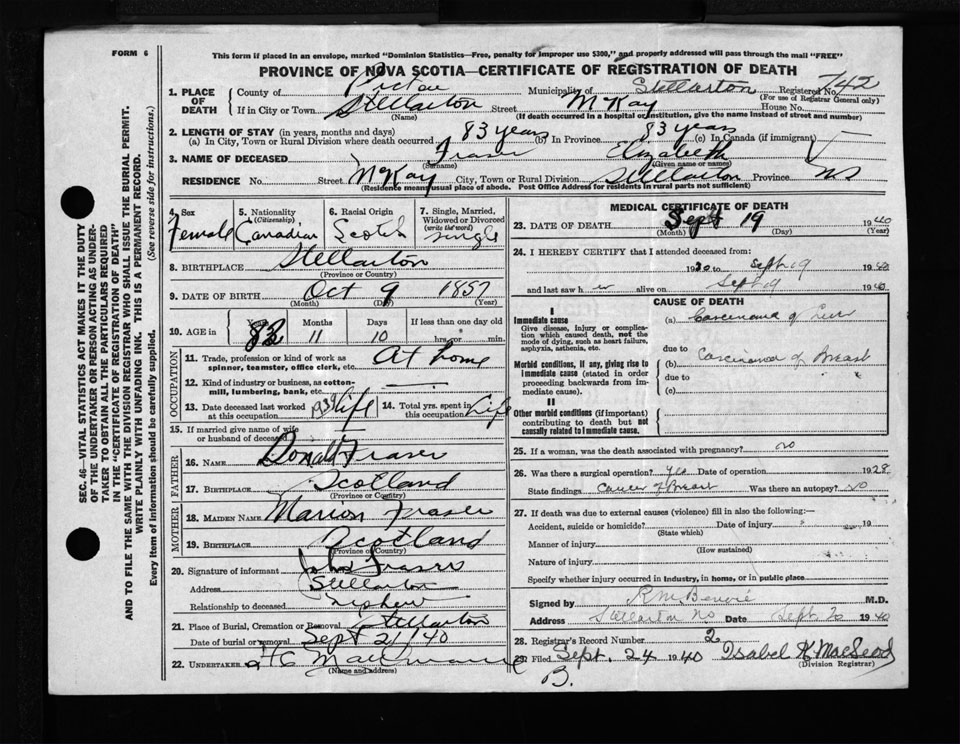 FORM 6
This form if placed in an envelope, marked "Dominion Statistics—Free, penalty for improper use $300," and properly addressed will pass through the mail "FREE"
PROVINCE OF NOVA SCOTIA—CERTIFICATE OF REGISTRATION OF DEATH
1. PLACE OF DEATH County of Pictou Municipality of Stellarton Registered No. 742
(For use of Registrar General only)
If in City or Town Stellarton Street McKay House No.
(Name) (If death occurred in a hospital or institution, give the name instead of street and number)
2. LENGTH OF STAY (in years, months and days)
(a) In City, Town or Rural Division where death occurred 83 years (b) In Province 83 years (c) In Canada (if immigrant)
3. NAME OF DECEASED Fraser Elizabeth
(Surname) (Given name or names)
RESIDENCE No. Street McKay City, Town or Rural Division Stellarton Province NS
(Residence means usual place of abode. Post Office Address for residents in rural parts not sufficient)
SEC. 46—VITAL STATISTICS ACT MAKES IT THE DUTY
OF THE UNDERTAKER OR PERSON ACTING AS UNDER-
TAKER TO OBTAIN ALL THE PARTICULARS REQUIRED
IN THE "CERTIFICATE OF REGISTRATION OF DEATH"
AND TO FILE THE SAME WITH THE DIVISION REGISTRAR WHO SHALL ISSUE THE BURIAL PERMIT.
WRITE PLAINLY WITH UNFADING INK. THIS IS A PERMANENT RECORD.
Every item of information should be carefully supplied. (See reverse side for instructions.)
4. Sex Female
5. Nationality (Citizenship) Canadian
6. Racial Origin Scotch
7. Single, Married, Widowed or Divorced (write the word) single
8. BIRTHPLACE Stellarton
(Province or Country)
9. DATE OF BIRTH Oct 9 1857
(Month) (Day) (Year)
10. AGE in Years Months Days If less than one day old
82 11 10 hrs. or min.
OCCUPATION
11. Trade, profession or kind of work as spinner, teamster, office clerk, etc. At home
12. Kind of industry or business, as cotton-mill, lumbering, bank, etc.
13. Date deceased last worked at this occupation 1939 life
14. Total yrs. spent in this occupation Life
15. If married give name of wife or husband of deceased
FATHER
16. NAME Donald Fraser
17. BIRTHPLACE Scotland
(Province or Country)
MOTHER
18. MAIDEN NAME Marion Fraser
19. BIRTHPLACE Scotland
(Province or Country)
20. Signature of informant John Fraser
Address Stellarton
Relationship to deceased Nephew
21. Place of Burial, Cremation or Removal Stellarton
Date of burial or removal Sept 21/40
22. UNDERTAKER
(Name and address)
MEDICAL CERTIFICATE OF DEATH
23. DATE OF DEATH Sept 19 1940
(Month) (Day) (Year)
24. I HEREBY CERTIFY that I attended deceased from:
1930 to Sept 19 1940
and last saw her alive on Sept 19 1940
CAUSE OF DEATH
I
Immediate cause
Give disease, injury or complication which caused death, not the mode of dying, such as heart failure, asphyxia, asthenia, etc.
(a) Carcinoma of Liver
due to
Morbid conditions, if any, giving rise to immediate cause (stated in order proceeding backwards from immediate cause).
(b) Carcinoma of Breast
due to
(c)
II
Other morbid conditions (if important) contributing to death but not causally related to immediate cause.
25. If a woman, was the death associated with pregnancy? no
26. Was there a surgical operation? yes Date of operation 1928
State findings Cancer of Breast Was there an autopsy? no
27. If death was due to external causes (violence) fill in also the following:—
Accident, suicide or homicide? Date of injury 19
(State which)
Manner of injury
(How sustained)
Nature of injury
Specify whether injury occurred in industry, in home, or in public place
Signed by R M Benvie M.D.
Address Stellarton NS Date Sept. 20 1940
28. Registrar's Record Number 2
29. Filed Sept. 24 1940 Isabel K MacLeod
(Division Registrar)
B.